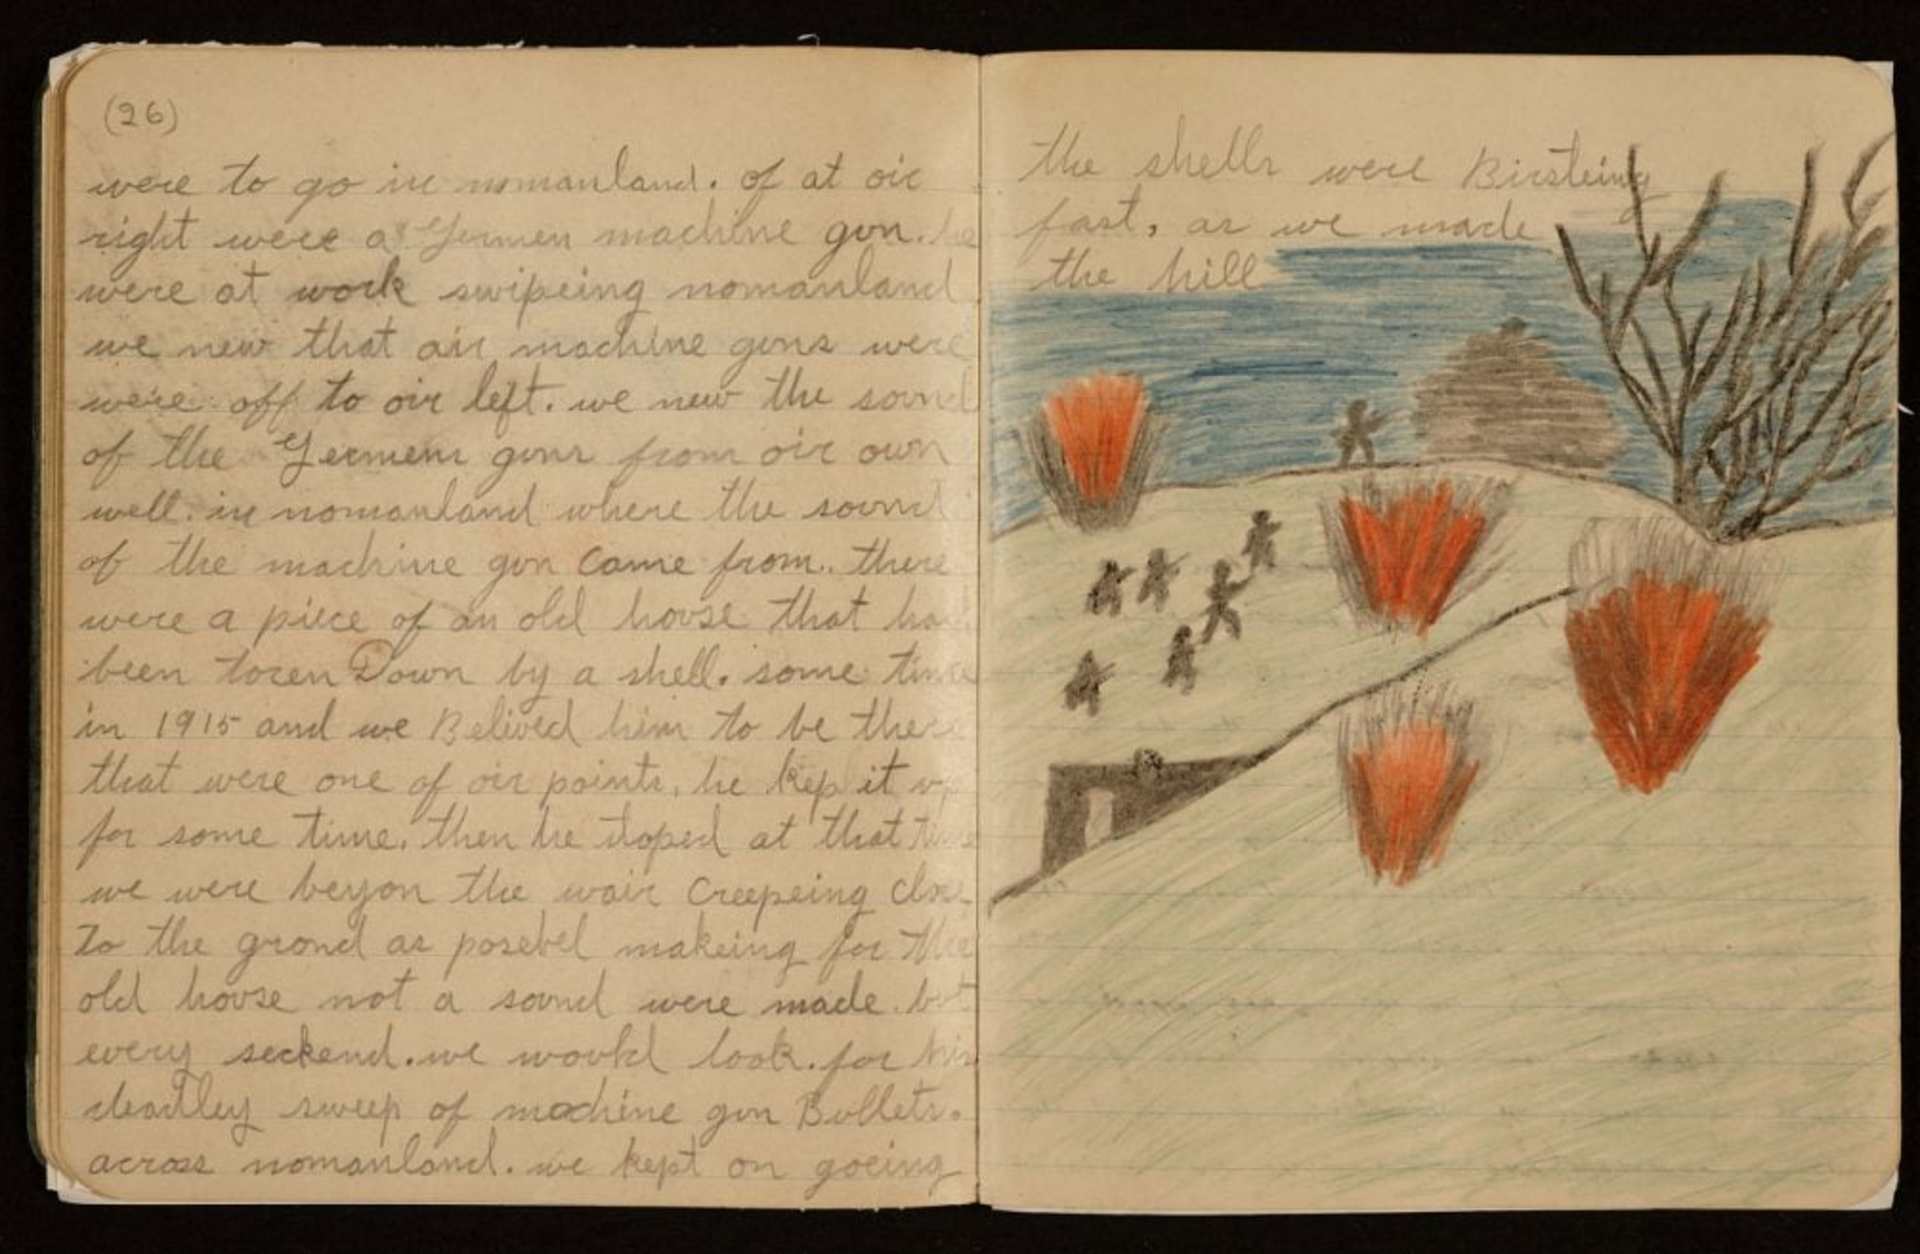 (26)
were to go in nomanland. of at oir
right were a Germen machine gon. he
were at work swipeing nomanland
we new that oir machine gons were
were off to oir left. we new the sound
of the Germens gons from oir own
well. in nomanland where the sound
of the machine gon came from. there
were a piece of an old hoose that had
been toren Down by a shell. some time
in 1915 and we Belived him to be there
that were one of oir points, he kep it up
for some time. then he stoped at that time
we were beyon the wair Creepeing close
to the grond as posebel makeing for the
old hoose not a sound were made. but
every seckend. we woold look. for his
deadley sweep of machine gon Bollets.
across nomanland. we kept on goeing
the shells were Birsteing
fast, as we made
the hill